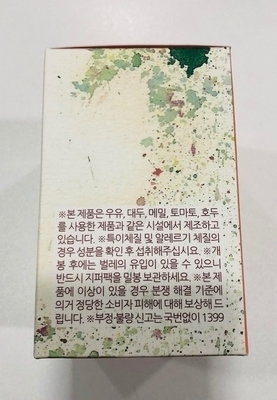 ※본 제품은 우유, 대두, 메밀, 토마토, 호두
를 사용한 제품과 같은 시설에서 제조하고
있습니다. ※특이체질 및 알레르기 체질의
경우 성분을 확인 후 섭취해주십시요. ※개
봉 후에는 벌레의 유입이 있을 수 있으니
반드시 지퍼팩을 밀봉 보관하세요. ※본 제
품에 이상이 있을 경우 분쟁 해결 기준에
의거 정당한 소비자 피해에 대해 보상해 드
립니다. ※부정·불량 신고는 국번없이 1399